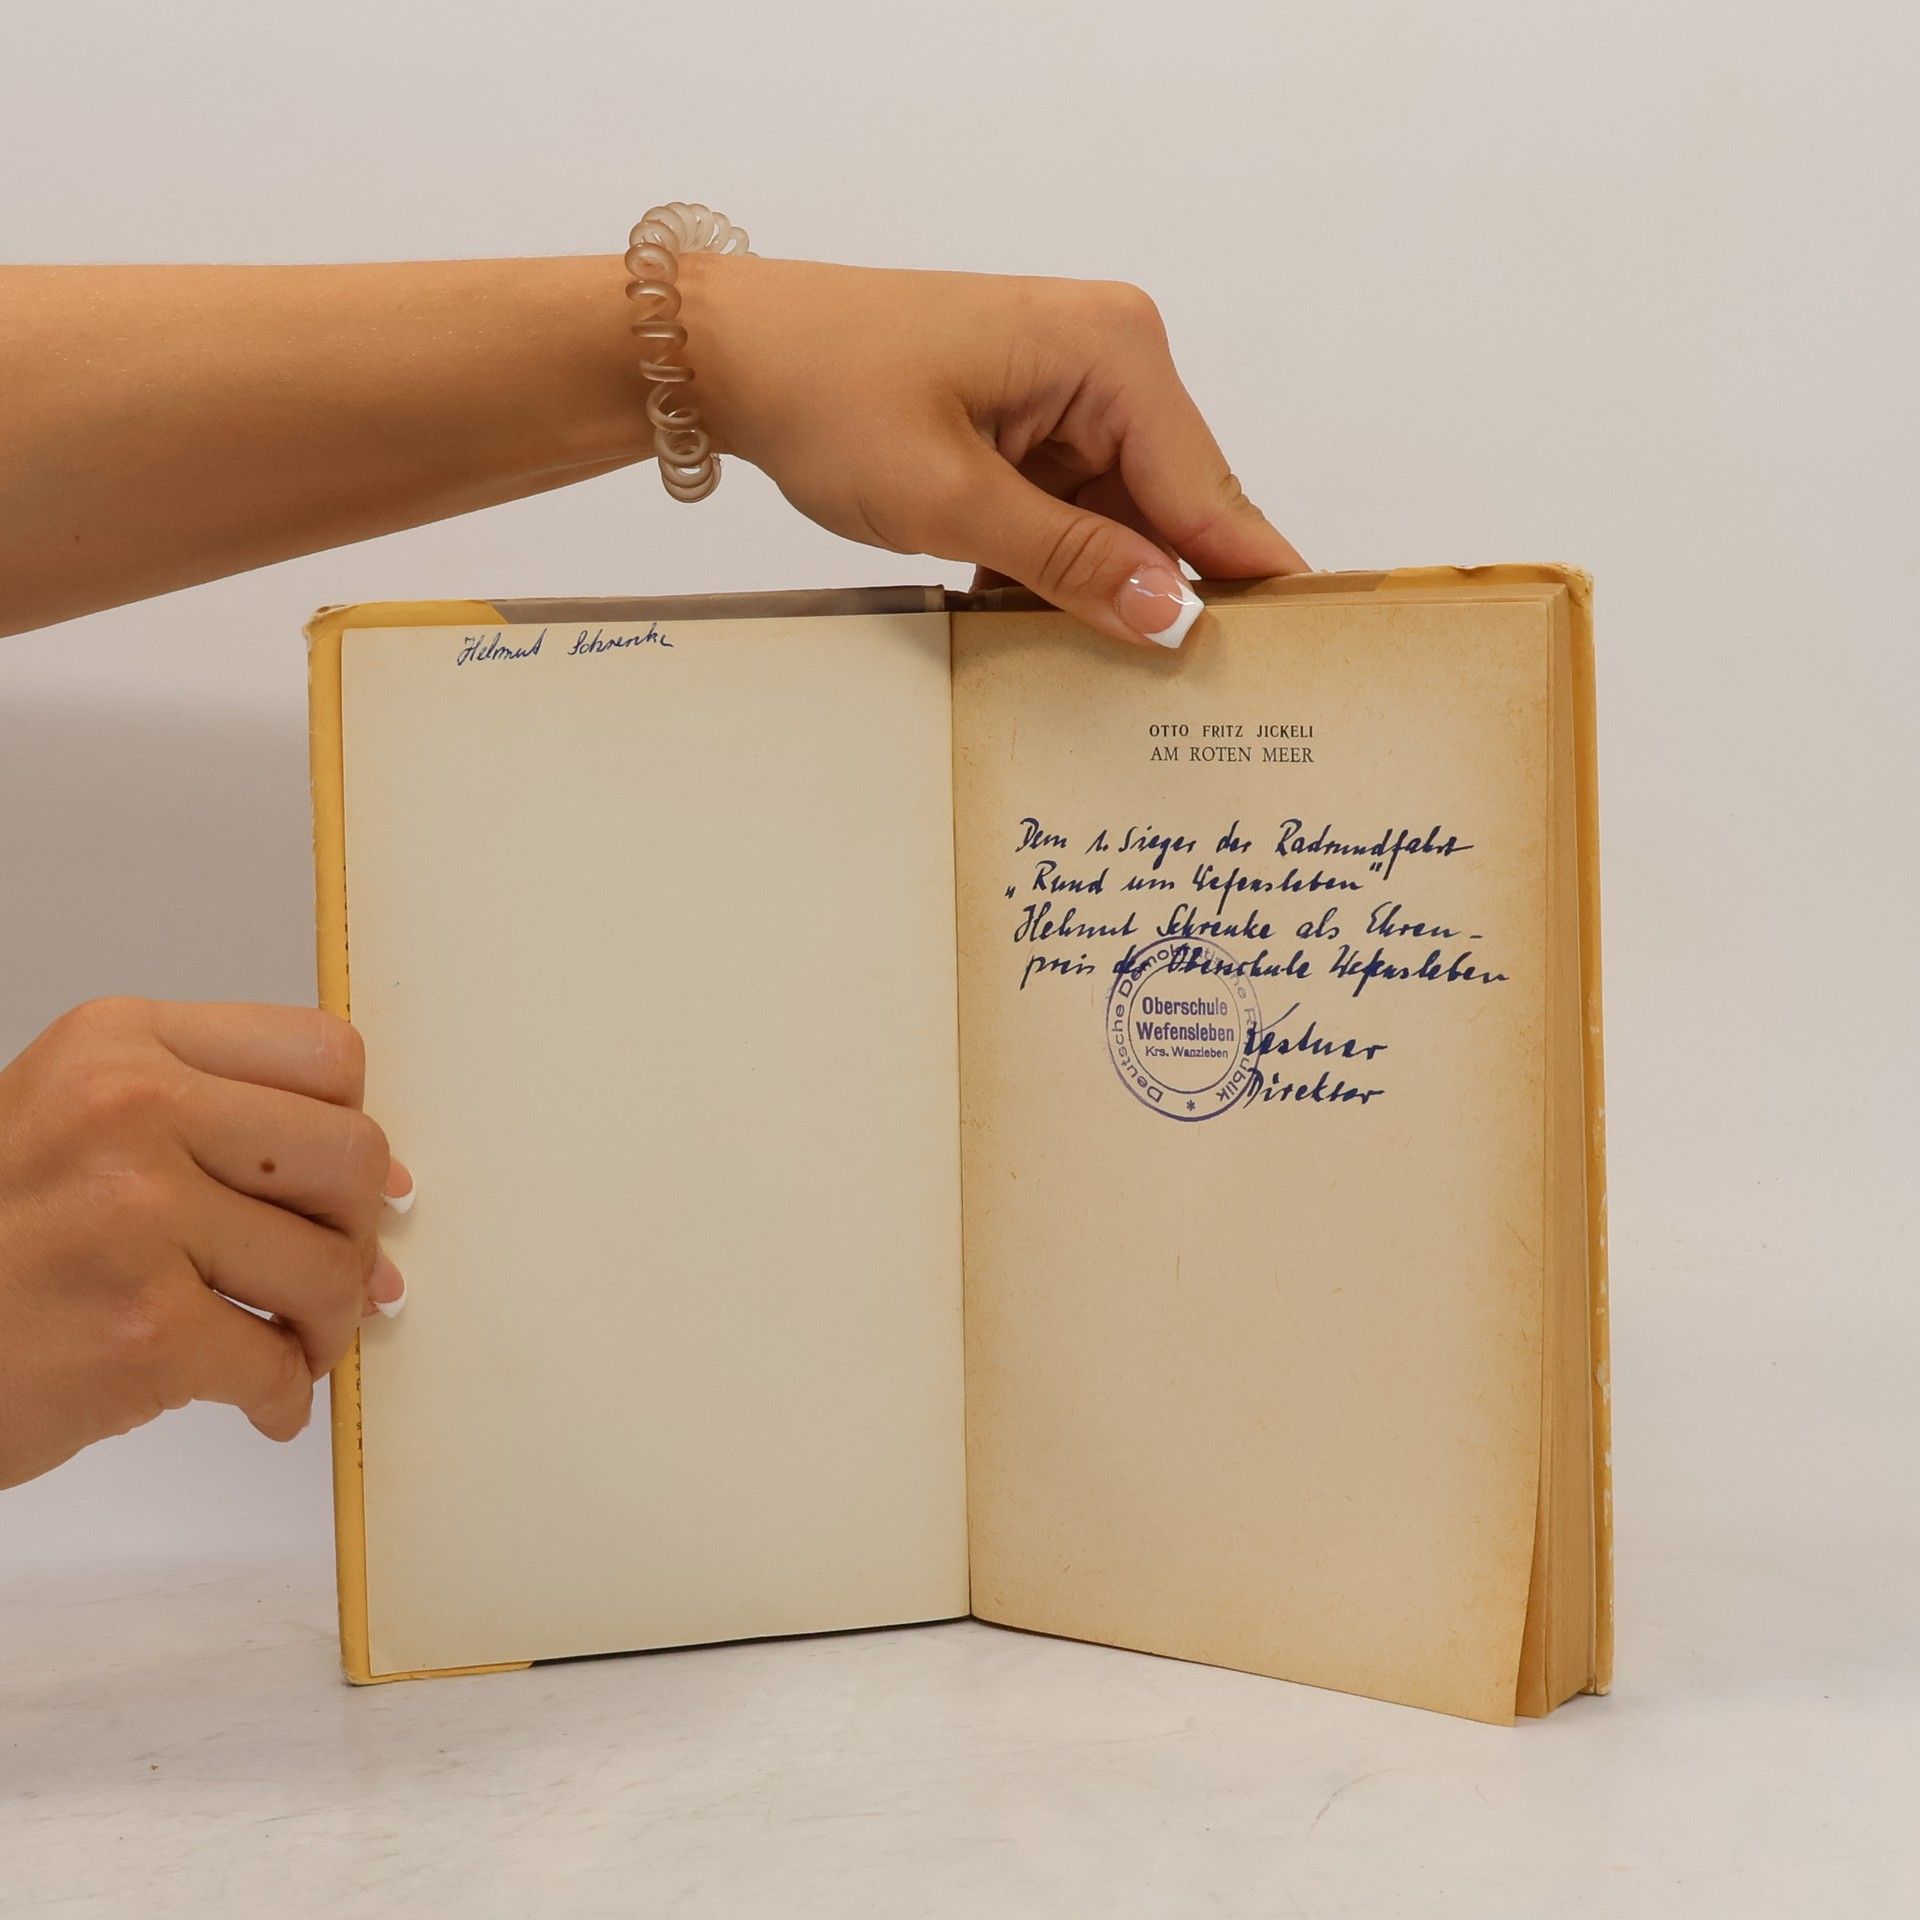 Helmut Schrenke
OTTO FRITZ JICKELI
AM ROTEN MEER
Dem 1. Sieger der Radrundfahrt
„Rund um Wefensleben"
Helmut Schrenke als Ehren-
preis der Oberschule Wefensleben
Deutsche Demokratische Republik *
Oberschule
Wefensleben
Krs. Wanzleben
Kestner
Direktor